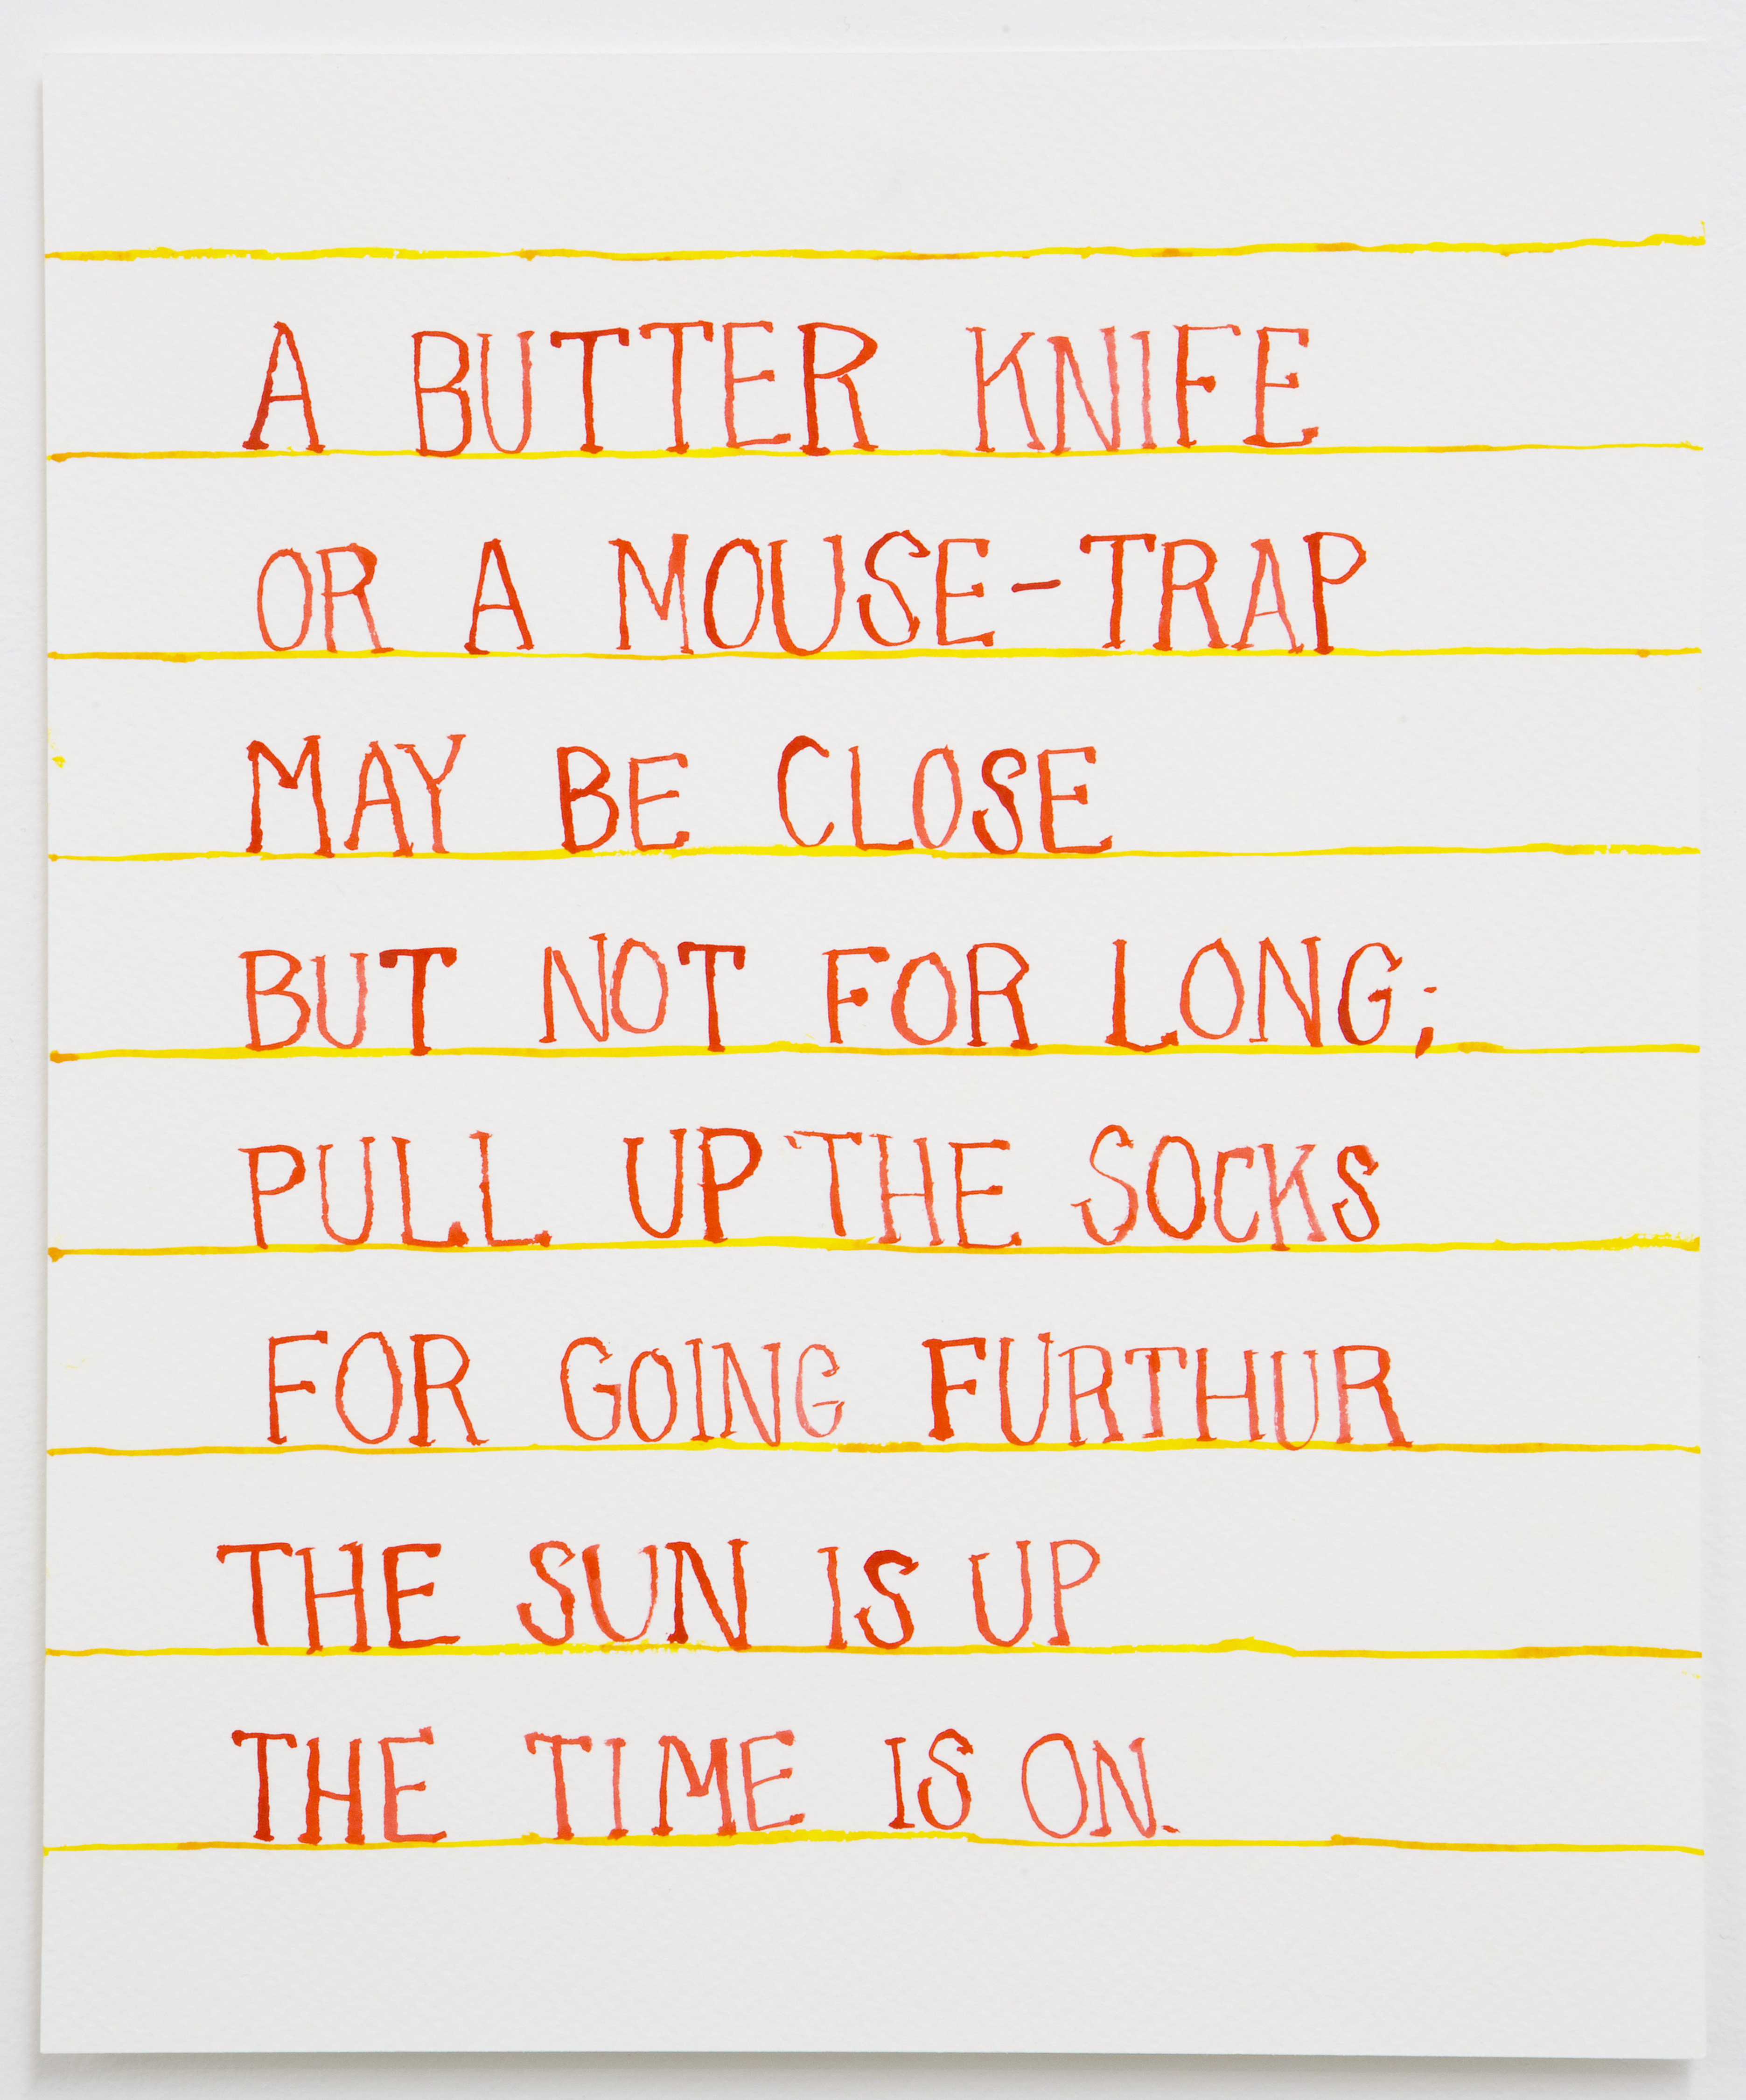 A BUTTER KNIFE
OR A MOUSE-TRAP
MAY BE CLOSE
BUT NOT FOR LONG;
PULL UP THE SOCKS
FOR GOING FURTHUR
THE SUN IS UP
THE TIME IS ON.